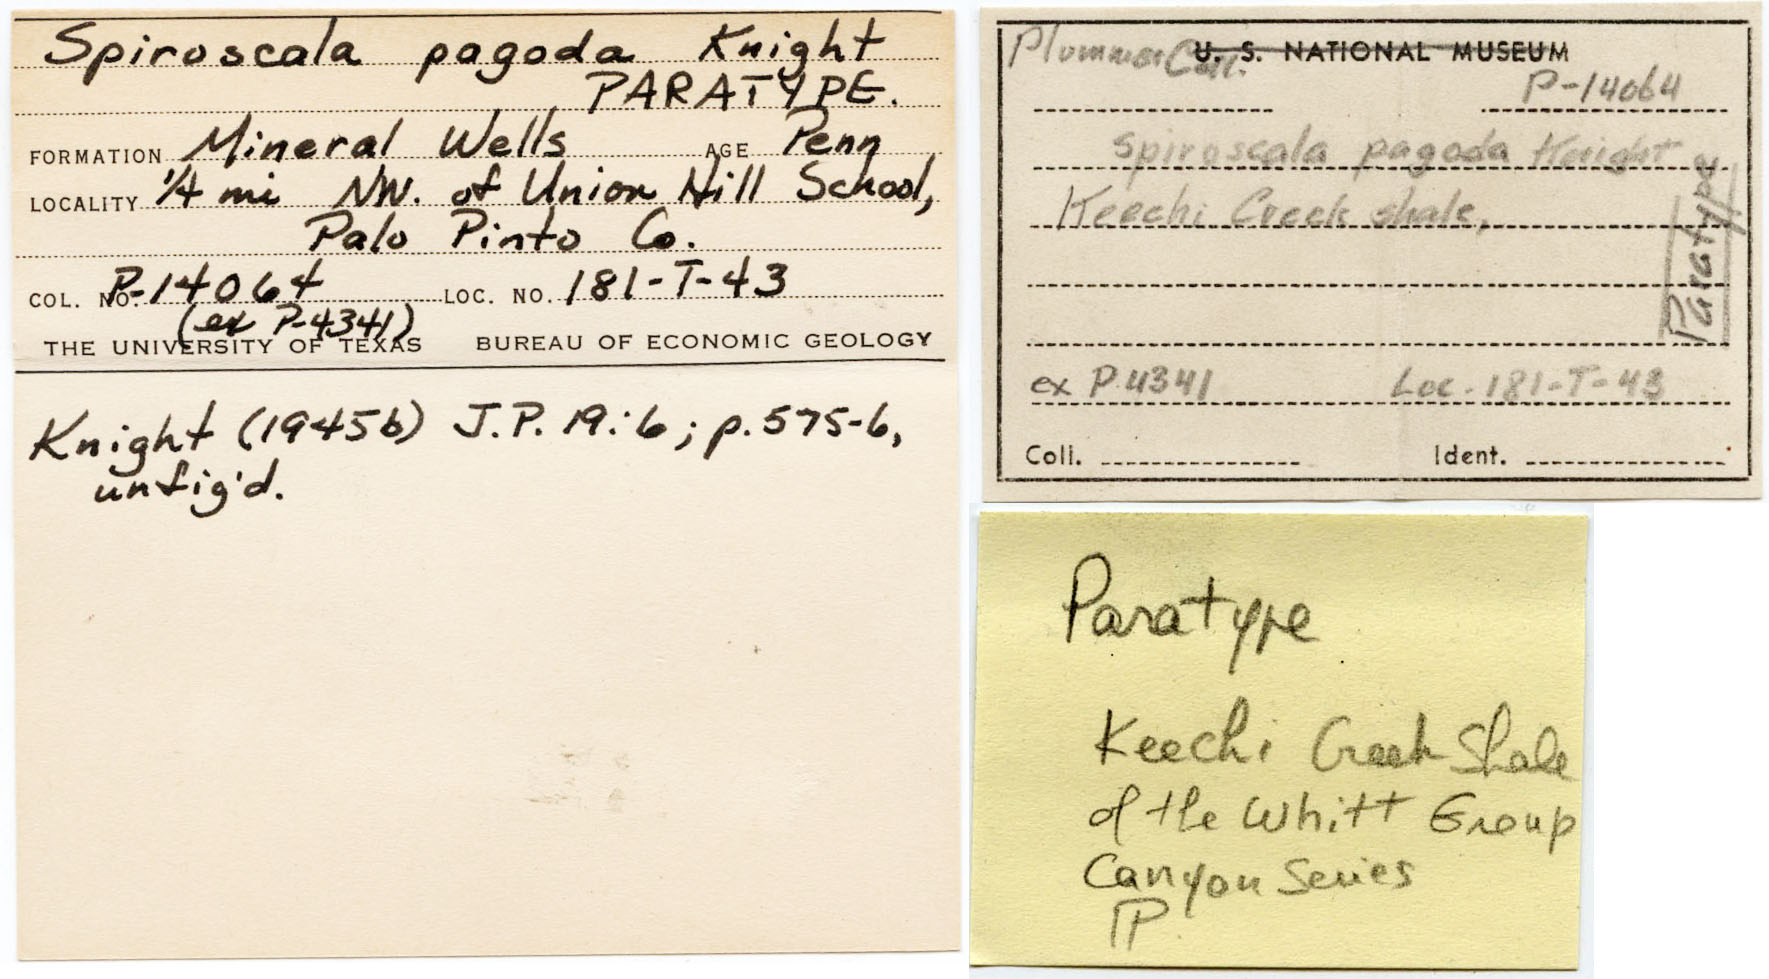 Spiroscala pagoda Knight
PARATYPE.
FORMATION Mineral Wells AGE Penn
LOCALITY 1/4 mi NW. of Union Hill School,
Palo Pinto Co.
COL. NO. P-14064 LOC. NO. 181-T-43
(ex P-4341)
THE UNIVERSITY OF TEXAS BUREAU OF ECONOMIC GEOLOGY
Knight (1945b) J.P. 19:6; p.575-6,
unfig'd.
Plummer Coll. U. S. NATIONAL MUSEUM
P-14064
Spiroscala pagoda Knight
Keechi Creek shale,
Paratype
ex P.4341 Loc. 181-T-43
Coll. Ident.
Paratype
Keechi Creek Shale
of the Whitt Group
Canyon Series
IP